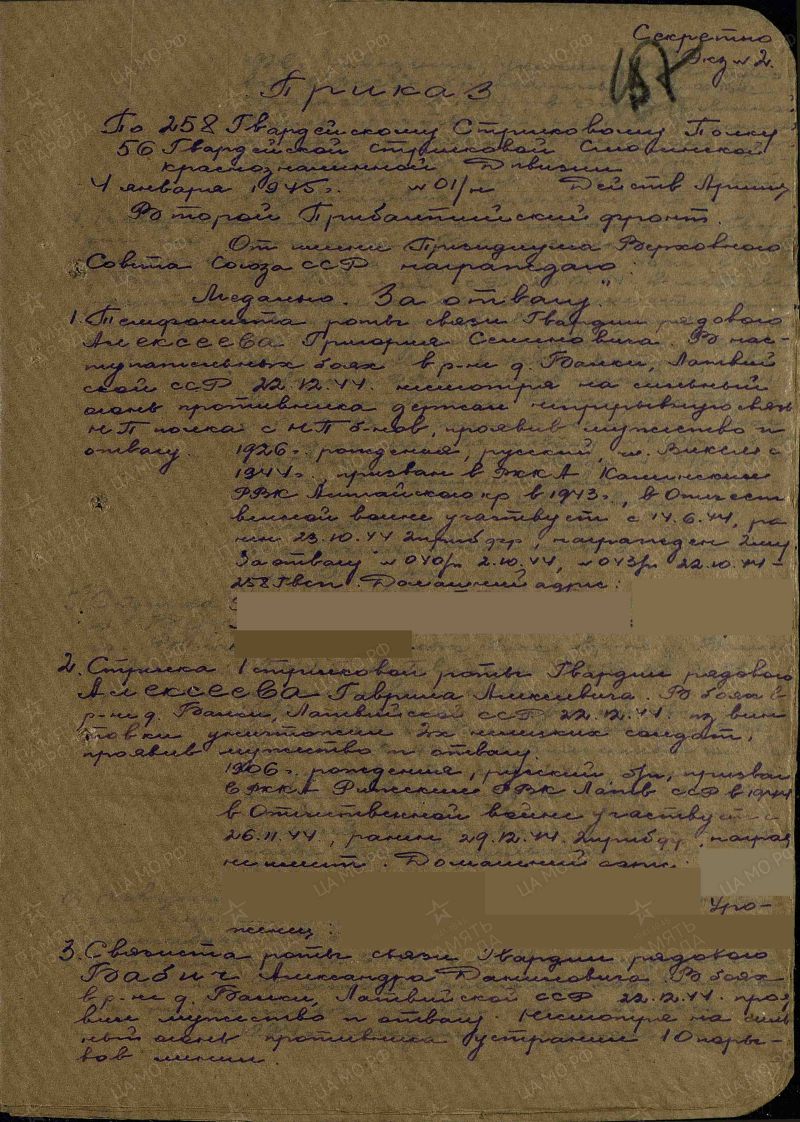 Секретно
Экз № 2.
187
Приказ
По 258 Гвардейскому Стрелковому Полку
56 Гвардейской стрелковой Смоленской
краснознаменной Дивизии
4 января 1945 г. № 01/н Действ Армия
Второй Прибалтийский фронт.
От имени Президиума Верховного
Совета Союза ССР награждаю:
Медалью "За отвагу"
1. Телефониста роты связи Гвардии рядового
Алексеева Григория Семеновича. В нас-
тупательных боях в р-не д. Балки, Латвий
ской ССР 22.12.44. несмотря на сильный
огонь противника держал непрерывную связь
НП полка с НП б-нов, проявив мужество и
отвагу. 1926 г. рождения, русский, чл. ВЛКСМ с
1944 г., призван в РККА
РВК Алтайского кр в 1943 г., в Отечест
венной войне участвует с 14.6.44, ра-
нен 23.10.44 2 приб фр, награжден 2 мя
За отвагу № 040/н 2.10.44, № 043/н 22.10.44 -
258 Гвсп. Домашний адрес:
2. Стрелка 1 стрелковой роты Гвардии рядового
Алексеева Гаврила Алексеевича. В боях в
р-не д. Балки, Латвийской ССР 22.12.44 из вин
товки уничтожил 2х немецких солдат,
проявив мужество и отвагу.
1906 г. рождения, русский, б/п, призван
в РККА РВК Латв ССР в 1944
в Отечественной войне участвует с
26.11.44, ранен 29.12.44 2 приб фр, наград
не имеет. Домашний
Уро-
женец:
3. Связиста роты связи Гвардии рядового
Бабич Александра Даниловича. В боях
в р-не д. Балки, Латвийской ССР 22.12.44 проя
вил мужество и отвагу. Несмотря на силь
ный огонь противника устранил 10 поры-
вов линии.
ЦАМО.РФ
ПАМЯТЬ
НАРОДА